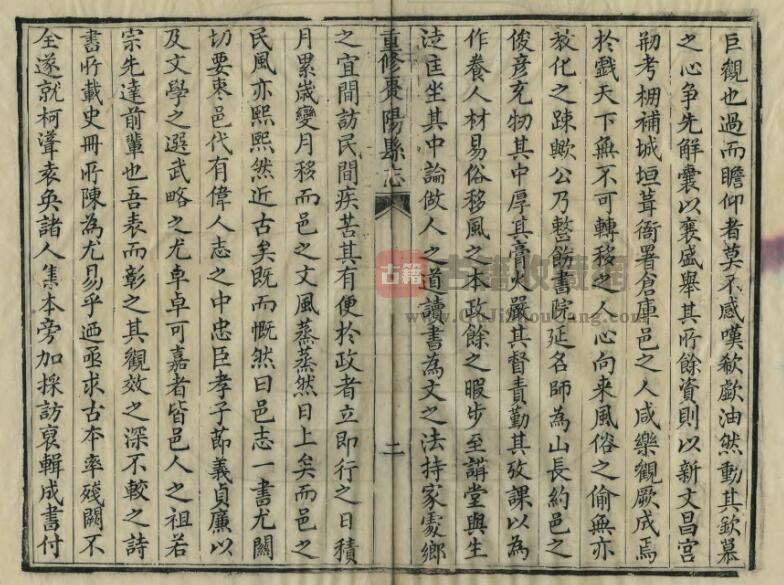 巨觀也過而瞻仰者莫不感嘆欷歔油然動其欽慕
之心爭先解囊以襄盛舉其所餘資則以新文昌宮
剏考棚補城垣葺衙署倉庫邑之人咸樂觀厥成焉
於戲天下無不可轉移之人心向來風俗之偷無亦
教化之踈歟公乃整飭書院延名師為山長約邑之
俊彥充物其中厚其膏火嚴其督責勤其攷課以為
作養人材易俗移風之本政餘之暇步至講堂與生
徒坐其中論做人之道讀書為文之法持家處鄉
重修棗陽縣志
二
之宜間訪民間疾苦其有便於政者立即行之日積
月累歲變月移而邑之文風蒸蒸然日上矣而邑之
民風亦熙熙然近古矣既而慨然曰邑志一書尤關
切要棗邑代有偉人志之中忠臣孝子節義貞廉以
及文學之選武略之尤卓卓可嘉者皆邑人之祖若
宗先達前輩也吾表而彰之其觀效之深不較之詩
書所載史冊所陳為尤易乎迺亟求古本率殘闕不
全遂就柯濬袁奐諸人集本旁加採訪裒輯成書付
古籍
古籍收藏網
www.GuJiShouCang.com